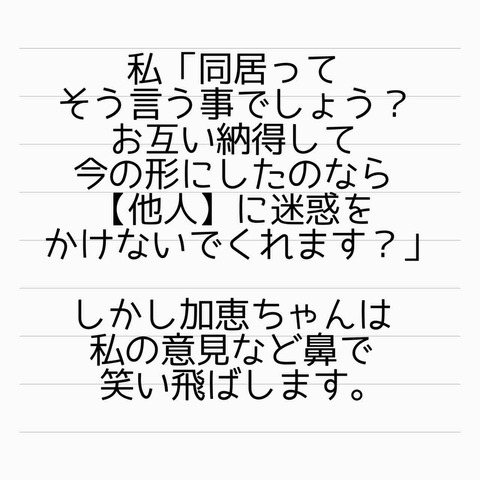 私「同居って
そう言う事でしょう？
お互い納得して
今の形にしたのなら
【他人】に迷惑を
かけないでくれます？」
しかし加恵ちゃんは
私の意見など鼻で
笑い飛ばします。